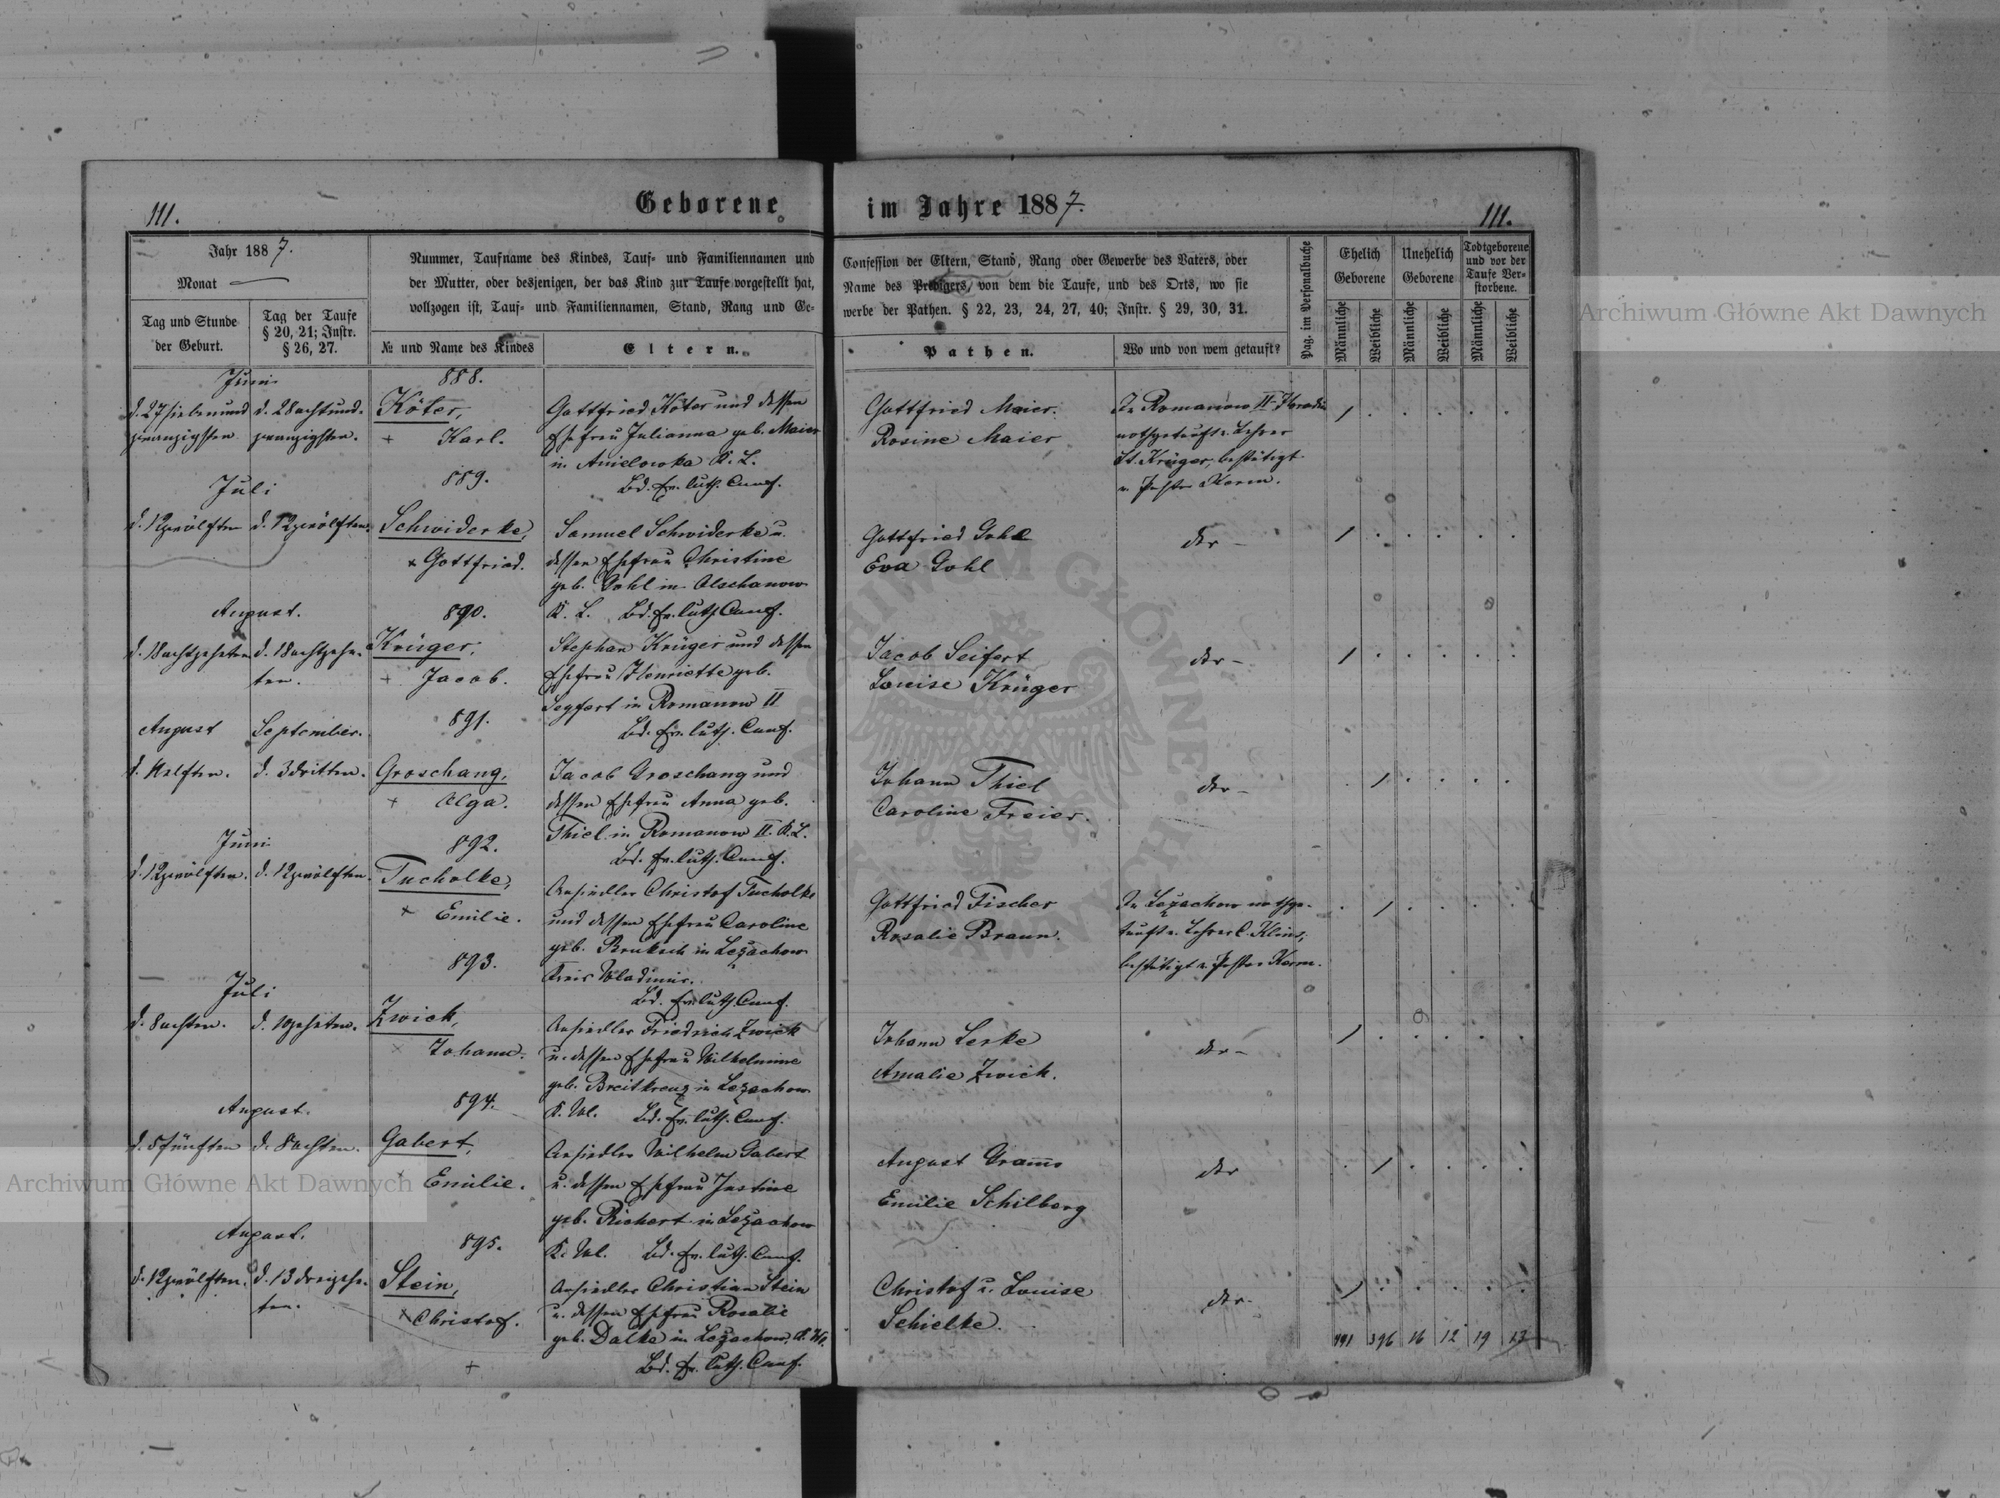 Geborene im Jahre 1887.
111.
111.
Jahr 1887.
Monat
Tag und Stunde der Geburt.
Tag der Taufe § 20, 21; Instr. § 26, 27.
Nummer, Taufname des Kindes, Tauf- und Familiennamen und
der Mutter, oder desjenigen, der das Kind zur Taufe vorgestellt hat,
vollzogen ist, Tauf- und Familiennamen, Stand, Rang und Ge-
№ und Name des Kindes
Eltern.
Confession der Eltern, Stand, Rang oder Gewerbe des Vaters, oder
Name des Predigers, von dem die Taufe, und des Orts, wo sie
werbe der Pathen. § 22, 23, 24, 27, 40; Instr. § 29, 30, 31.
Pathen.
Wo und von wem getauft?
Pag. im Personalbuche
Ehelich Geborene
Unehelich Geborene
Todtgeborene und vor der Taufe Verstorbene.
Männliche
Weibliche
Männliche
Weibliche
Männliche
Weibliche
Juni
888.
d. 27 siebenund
zwanzigsten
d. 28 achtund-
zwanzigsten.
Köter,
+ Karl.
Gottfried Köter und dessen
Ehefrau Julianna geb. Maier
in Anielowka K. L.
Bd. Ev. luth. Conf.
Gottfried Maier.
Rosine Maier
In Romanow II
nothgetauft v. Lehrer
St. Krüger, bestätigt
v. Pastor Kerm.
Juli
889.
d. 12 zwölften
d. 12 zwölften.
Schwiderke,
+ Gottfried.
Samuel Schwiderke u.
dessen Ehefrau Christine
geb. Gohl in Olschanow
K. L. Bd. Ev. luth. Conf.
Gottfried Gohl
Eva Gohl
der –
August.
890.
d. 18 achtzehnten
d. 18 achtzehn-
ten.
Krüger,
+ Jacob.
Stephan Krüger und dessen
Ehefrau Henriette geb.
Seyfert in Romanow II
Bd. Ev. luth. Conf.
Jacob Seifert
Louise Krüger
der –
August
September.
891.
d. 11 elften.
d. 3 dritten.
Groschang,
+ Olga.
Jacob Groschang und
dessen Ehefrau Anna geb.
Thiel in Romanow II. K. L.
Bd. Ev. luth. Conf.
Johann Thiel
Caroline Freier.
der –
Juni
892.
d. 12 zwölften.
d. 12 zwölften.
Tucholke,
+ Emilie.
Ansiedler Christof Tucholke
und dessen Ehefrau Caroline
geb. Bruksch in Lezachow
Kreis Wladimir.
Bd. Ev. luth. Conf.
Gottfried Fischer
Rosalie Braun.
In Lezachow nothge-
tauft v. Lehrer C. Klems,
bestätigt v. Pastor Kerm.
Juli
893.
d. 8 achten.
d. 10 zehnten.
Zwick,
+ Johann.
Ansiedler Friedrich Zwick
u. dessen Ehefrau Wilhelmine
geb. Breitkreuz in Lezachow
K. Wl. Bd. Ev. luth. Conf.
Johann Leske
Amalie Zwick.
der –
August.
894.
d. 5 fünften
d. 8 achten.
Gabert,
+ Emilie.
Ansiedler Wilhelm Gabert
u. dessen Ehefrau Justine
geb. Richert in Lezachow
K. Wl. Bd. Ev. luth. Conf.
August Grams
Emilie Schilberg
der
August.
895.
d. 12 zwölften.
d. 13 dreizehn-
ten.
Stein,
+ Christof.
Ansiedler Christian Stein
u. dessen Ehefrau Rosalie
geb. Dalke in Lezachow, K. Wl.
Bd. Ev. luth. Conf.
Christof u. Louise
Schielke.
der
491 396 16 12 19 17
Archiwum Główne Akt Dawnych
Archiwum Główne Akt Dawnych
ARCHIWUM GŁÓWNE AKT DAWNYCH